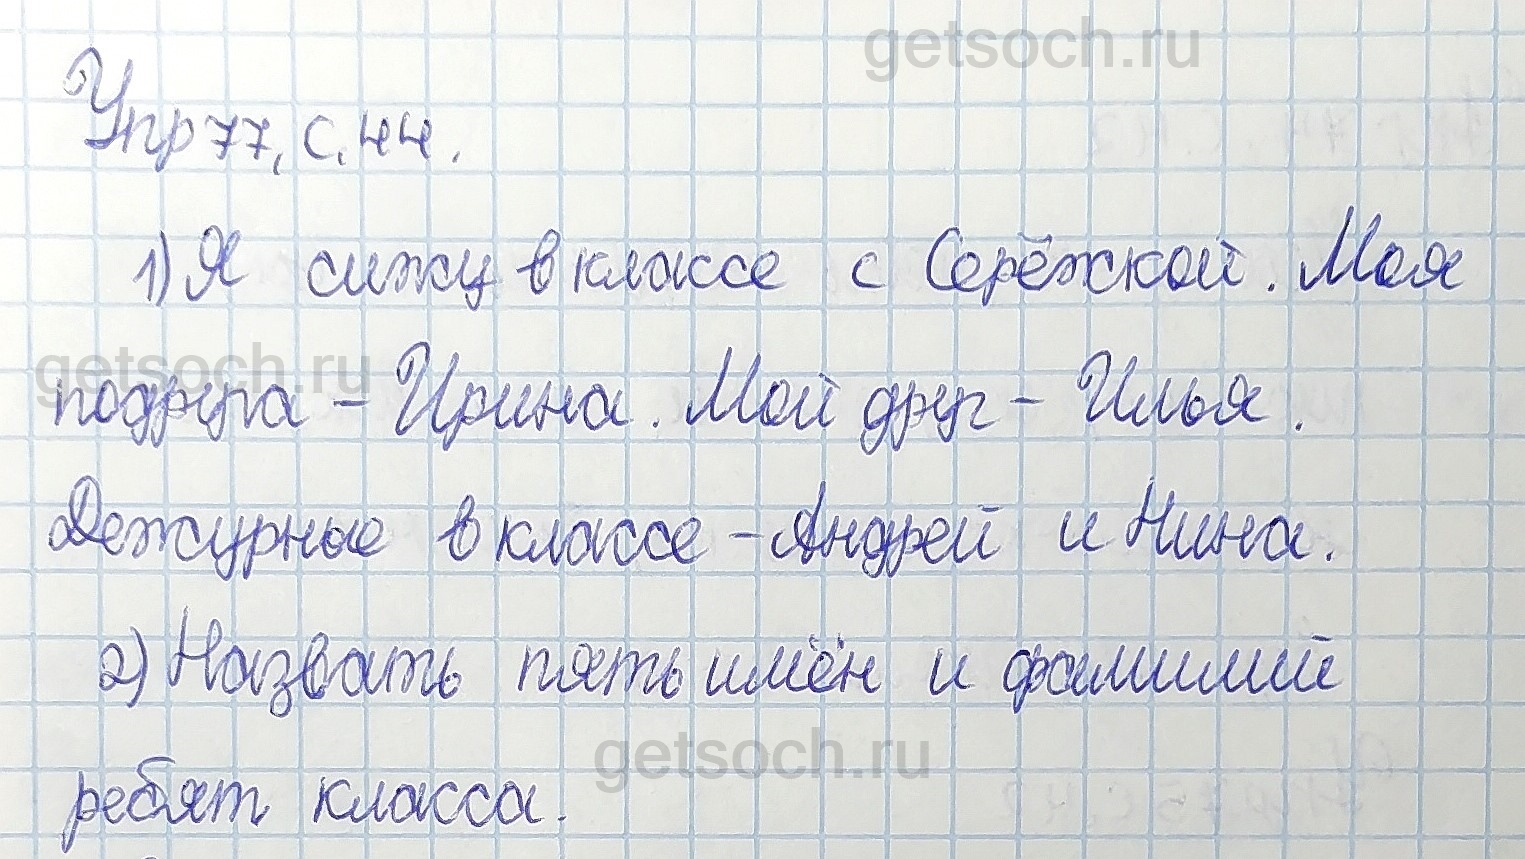 getsoch.ru
Упр 77, с. 44.
1) Я сижу в классе с Серёжкой. Моя
getsoch.ru
подруга - Ирина. Мой друг - Илья.
Дежурные в классе - Андрей и Нина.
2) Назвать пять имён и фамилий
getsoch.ru
ребят класса.